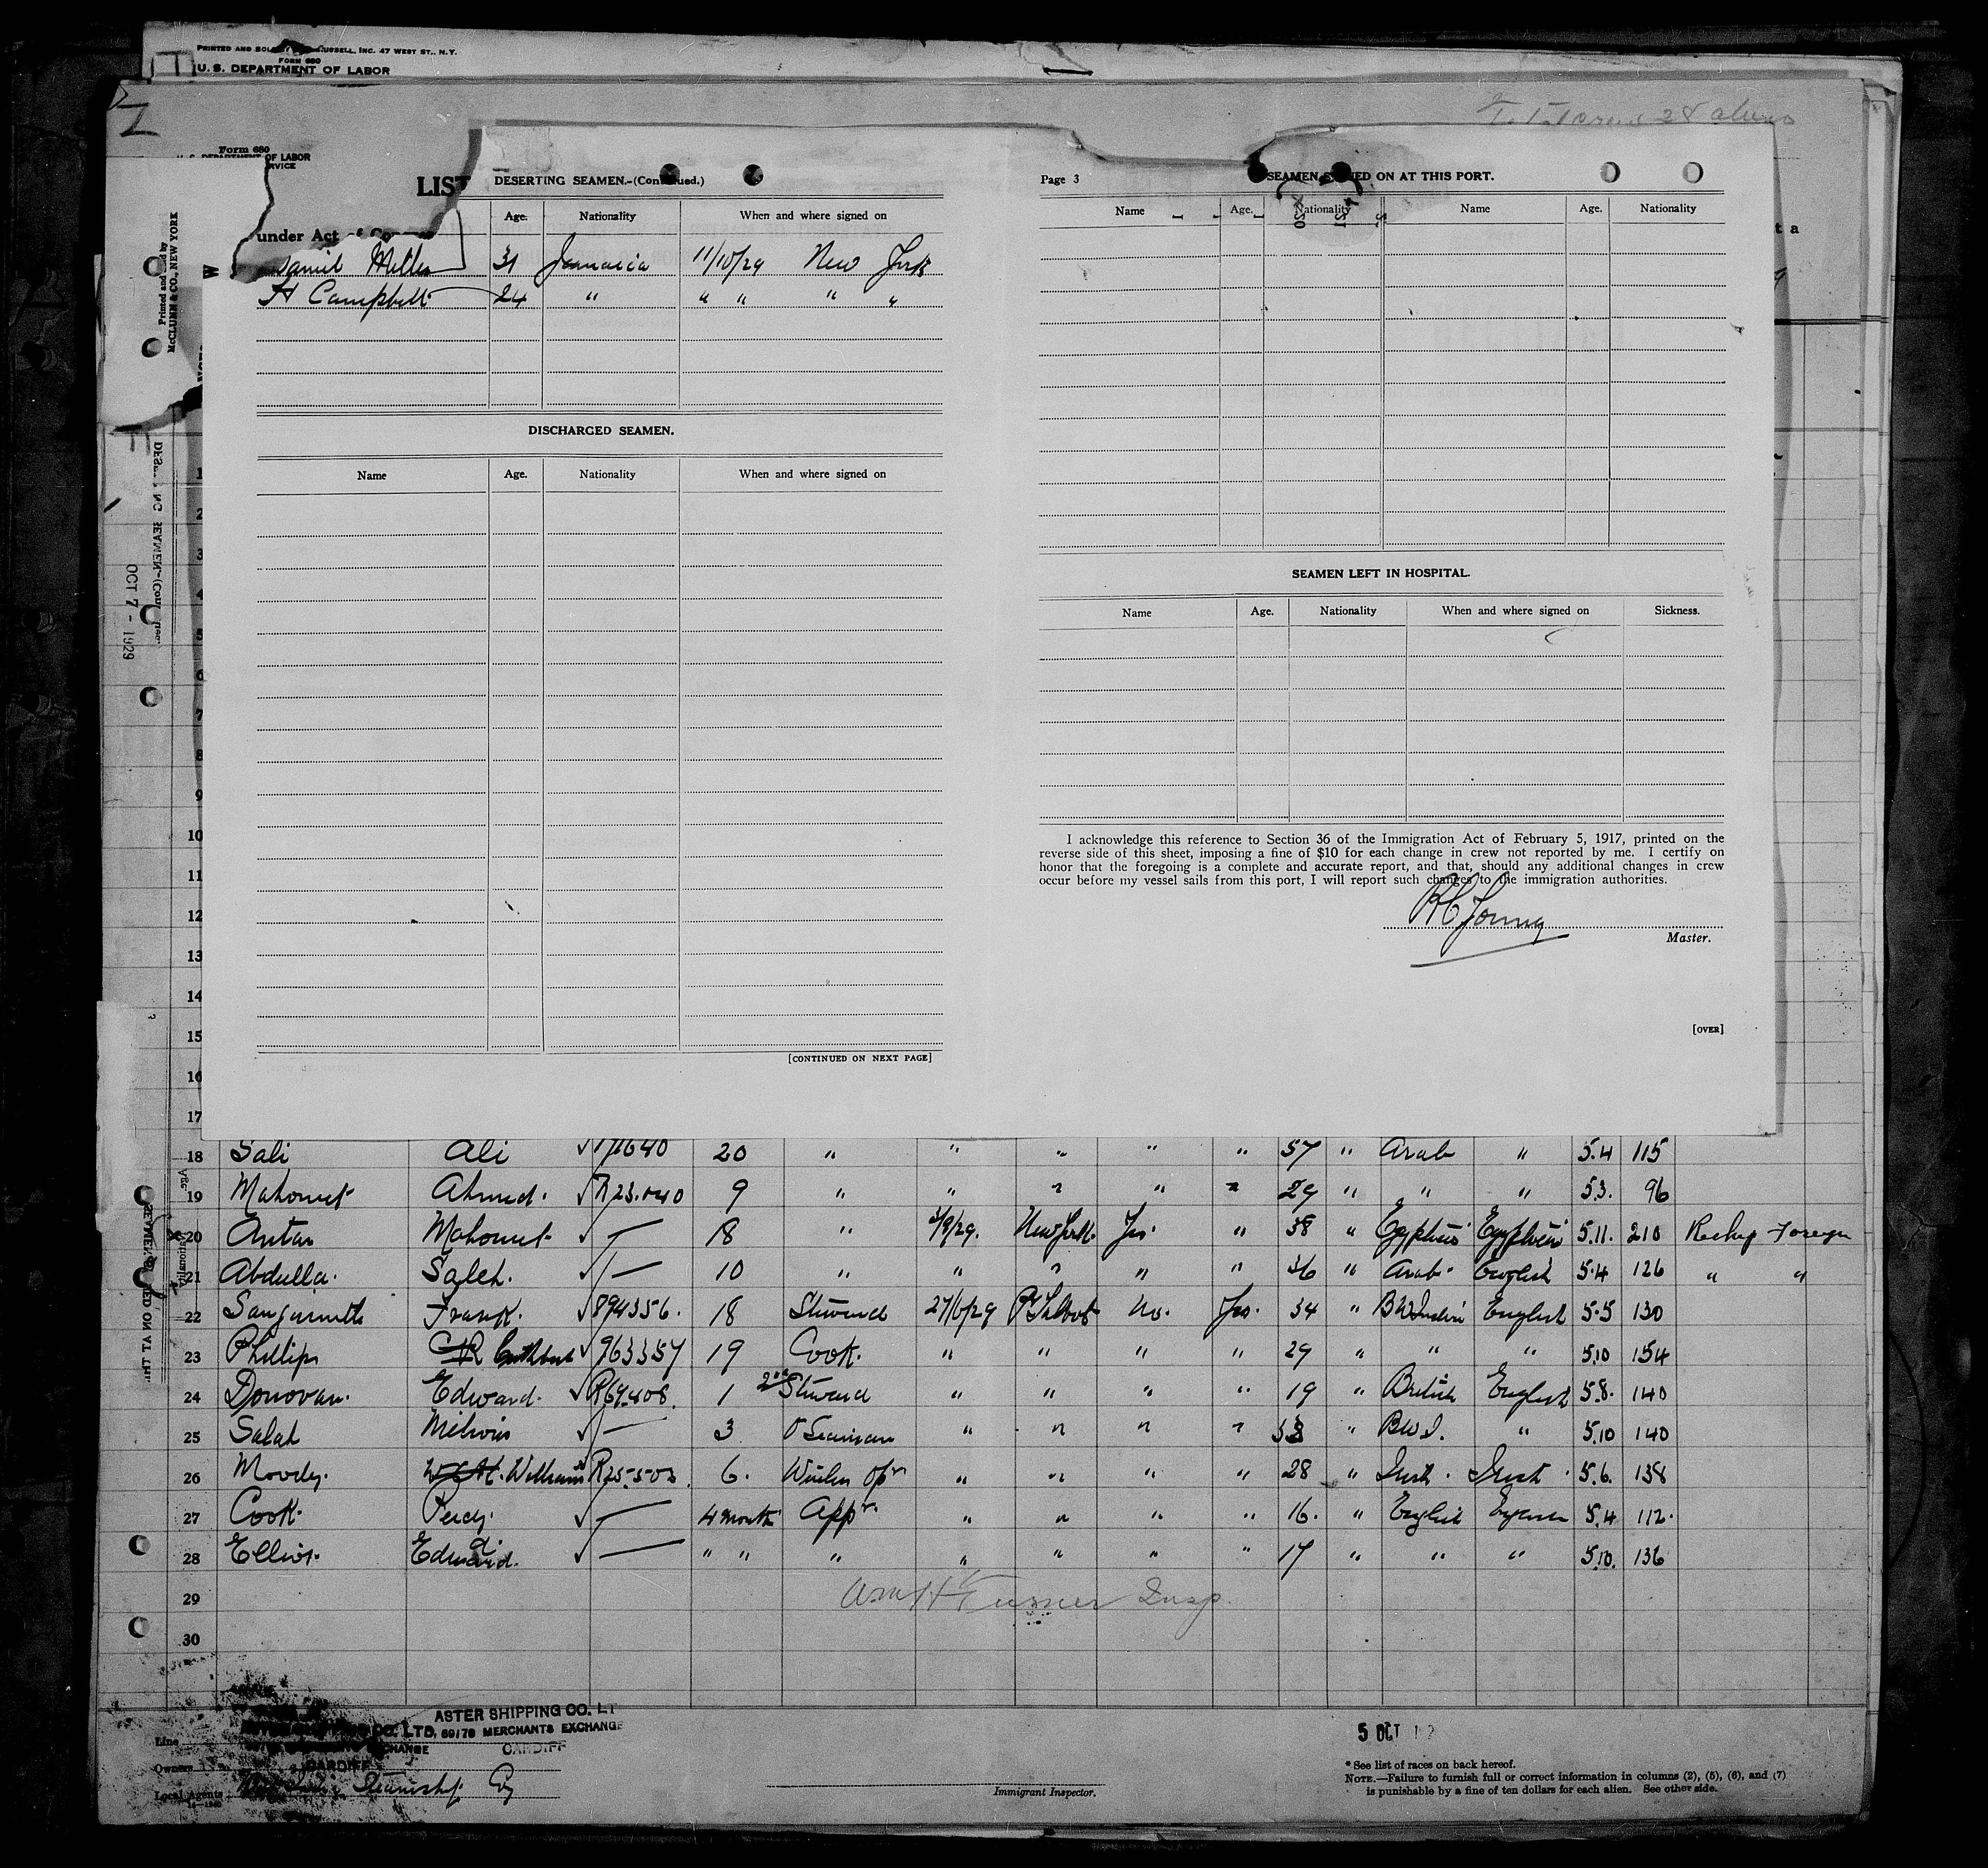 U. S. DEPARTMENT OF LABOR
FORM 680
Form 680
OF LABOR
LIST
under Act of
Printed and sold by
McCLUMM & CO., NEW YORK
OCT 7 - 1929
DESERTING SEAMEN.-(Continued.)
Age. Nationality When and where signed on
Daniel Miller 31 Jamaica 11/10/29 New York
H Campbell 24 " " " " "
DISCHARGED SEAMEN.
Name Age. Nationality When and where signed on
[CONTINUED ON NEXT PAGE]
Page 3
SEAMEN SIGNED ON AT THIS PORT.
Name Age. Nationality Name Age. Nationality
SEAMEN LEFT IN HOSPITAL.
Name Age. Nationality When and where signed on Sickness.
I acknowledge this reference to Section 36 of the Immigration Act of February 5, 1917, printed on the
reverse side of this sheet, imposing a fine of $10 for each change in crew not reported by me. I certify on
honor that the foregoing is a complete and accurate report, and that, should any additional changes in crew
occur before my vessel sails from this port, I will report such changes to the immigration authorities.
Young
Master.
[OVER]
1
2
3
4
5
6
7
8
9
10
11
12
13
14
15
16
17
18 Sali Ali 20 " " " " " 57 " Arab " 5.4 115
19 Mahomet Ahmed. 9 " " " " " 29 " " " 5.3. 96
20 Antar Mahomet — 18 " New York Yes " 38 " Egyptian Egyptian 5.11. 210 Reship Foreign
21 Abdulla. Saleh. — 10 " " " " " 36 " Arab English 5.4 126 " "
22 Frank. 894356. 18 Steward Pt Talbot No. Yes. 34 " English 5.5 130
23 Phillips Cuthbert 963357 19 Cook. " " " " 29 " " " 5.10 154
24 Donovan. Edward. R69408. 1 2nd Steward " " " " 19 " British English 5.8. 140
25 Salah — 3 " " " " " B W I. " 5.10 140
26 William 6. " " " " 28 " Irish. Irish 5.6. 138
27 Cook. Percy. — 4 month Appr. " " " " 16. " English 5.4 112.
28 Edward. — " " " " " " " 17 " " " 5.10. 136
29
30
Wm H Turner Insp.
ASTER SHIPPING CO. LT
CO. LTD, 69/78 MERCHANTS EXCHANGE
CARDIFF
CARDIFF
Line
Owners
Local Agents Steamship
Immigrant Inspector.
5 OCT
* See list of races on back hereof.
NOTE.—Failure to furnish full or correct information in columns (2), (5), (6), and (7)
is punishable by a fine of ten dollars for each alien. See other side.